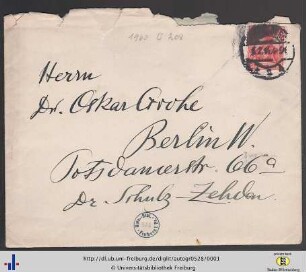 Herrn
Dr. Oskar Grohe
Berlin W.
Potsdamerstr. 66a
Dr. Schulz-Zehden
http://dl.ub.uni-freiburg.de/diglit/autogr0528/0001
© Universitätsbibliothek Freiburg